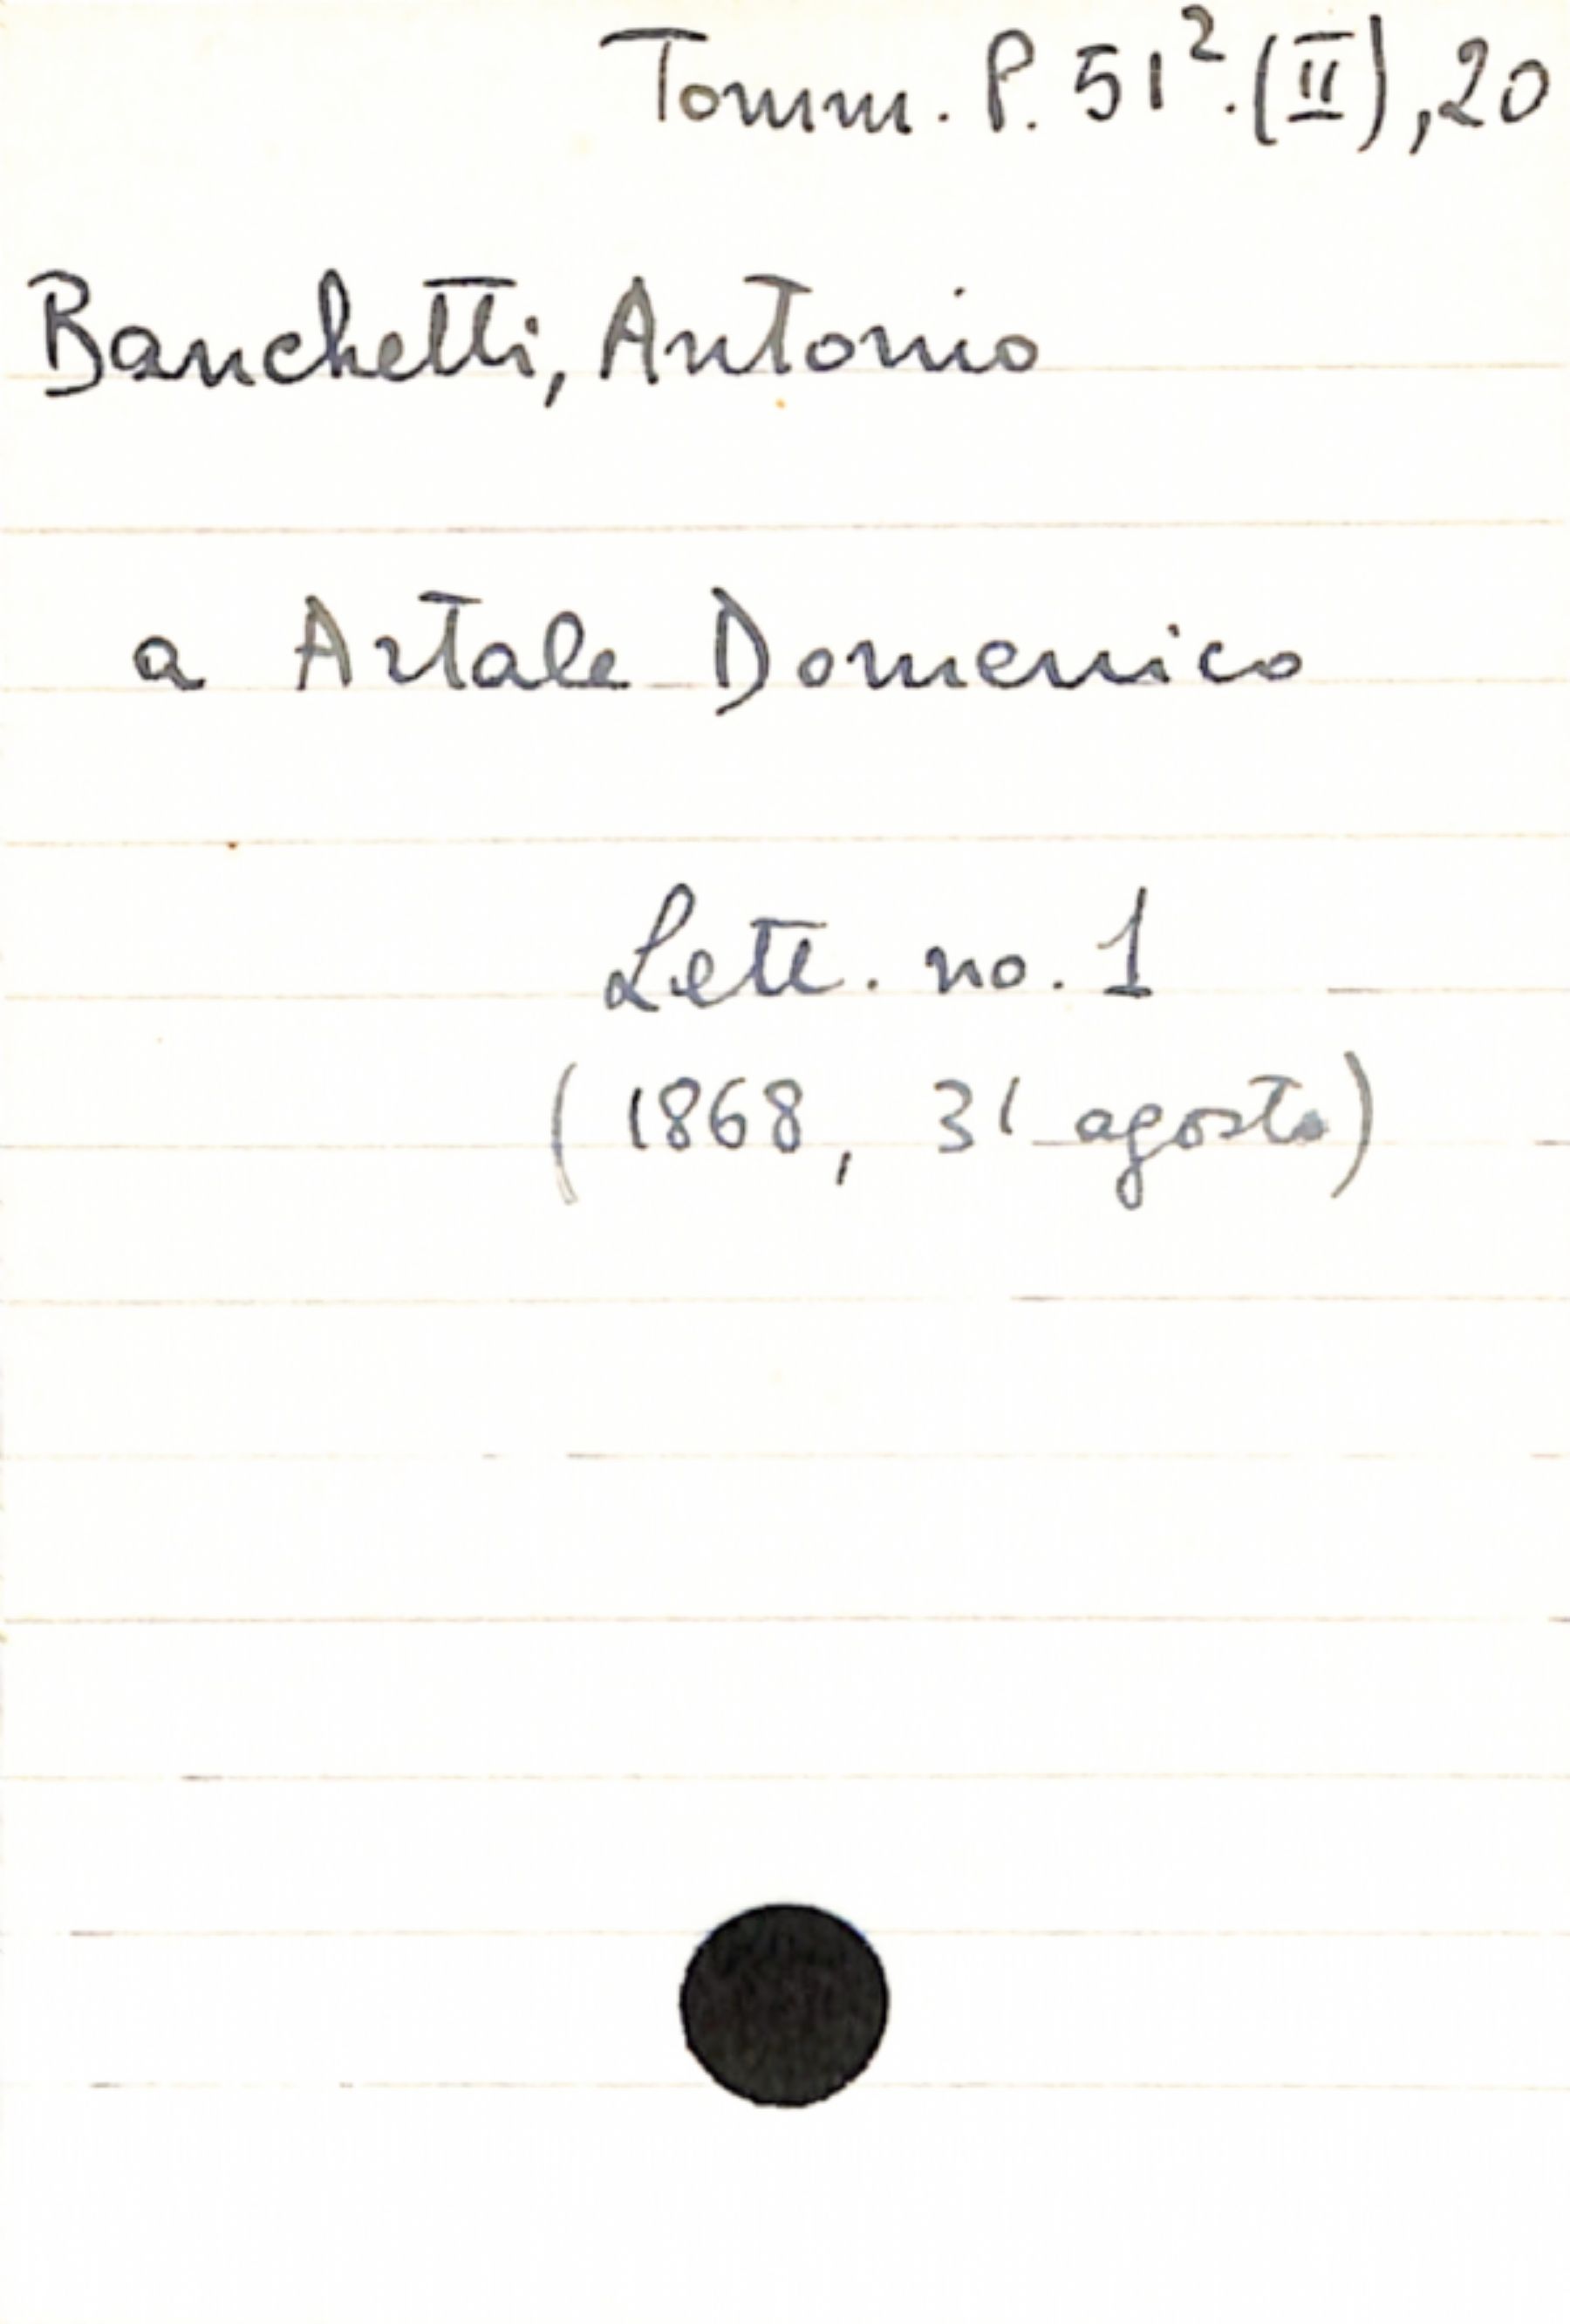 Tomm. P. 51². (II), 20
Banchetti, Antonio
a Artale Domenico
Lett. no. 1
(1868, 31 agosto)